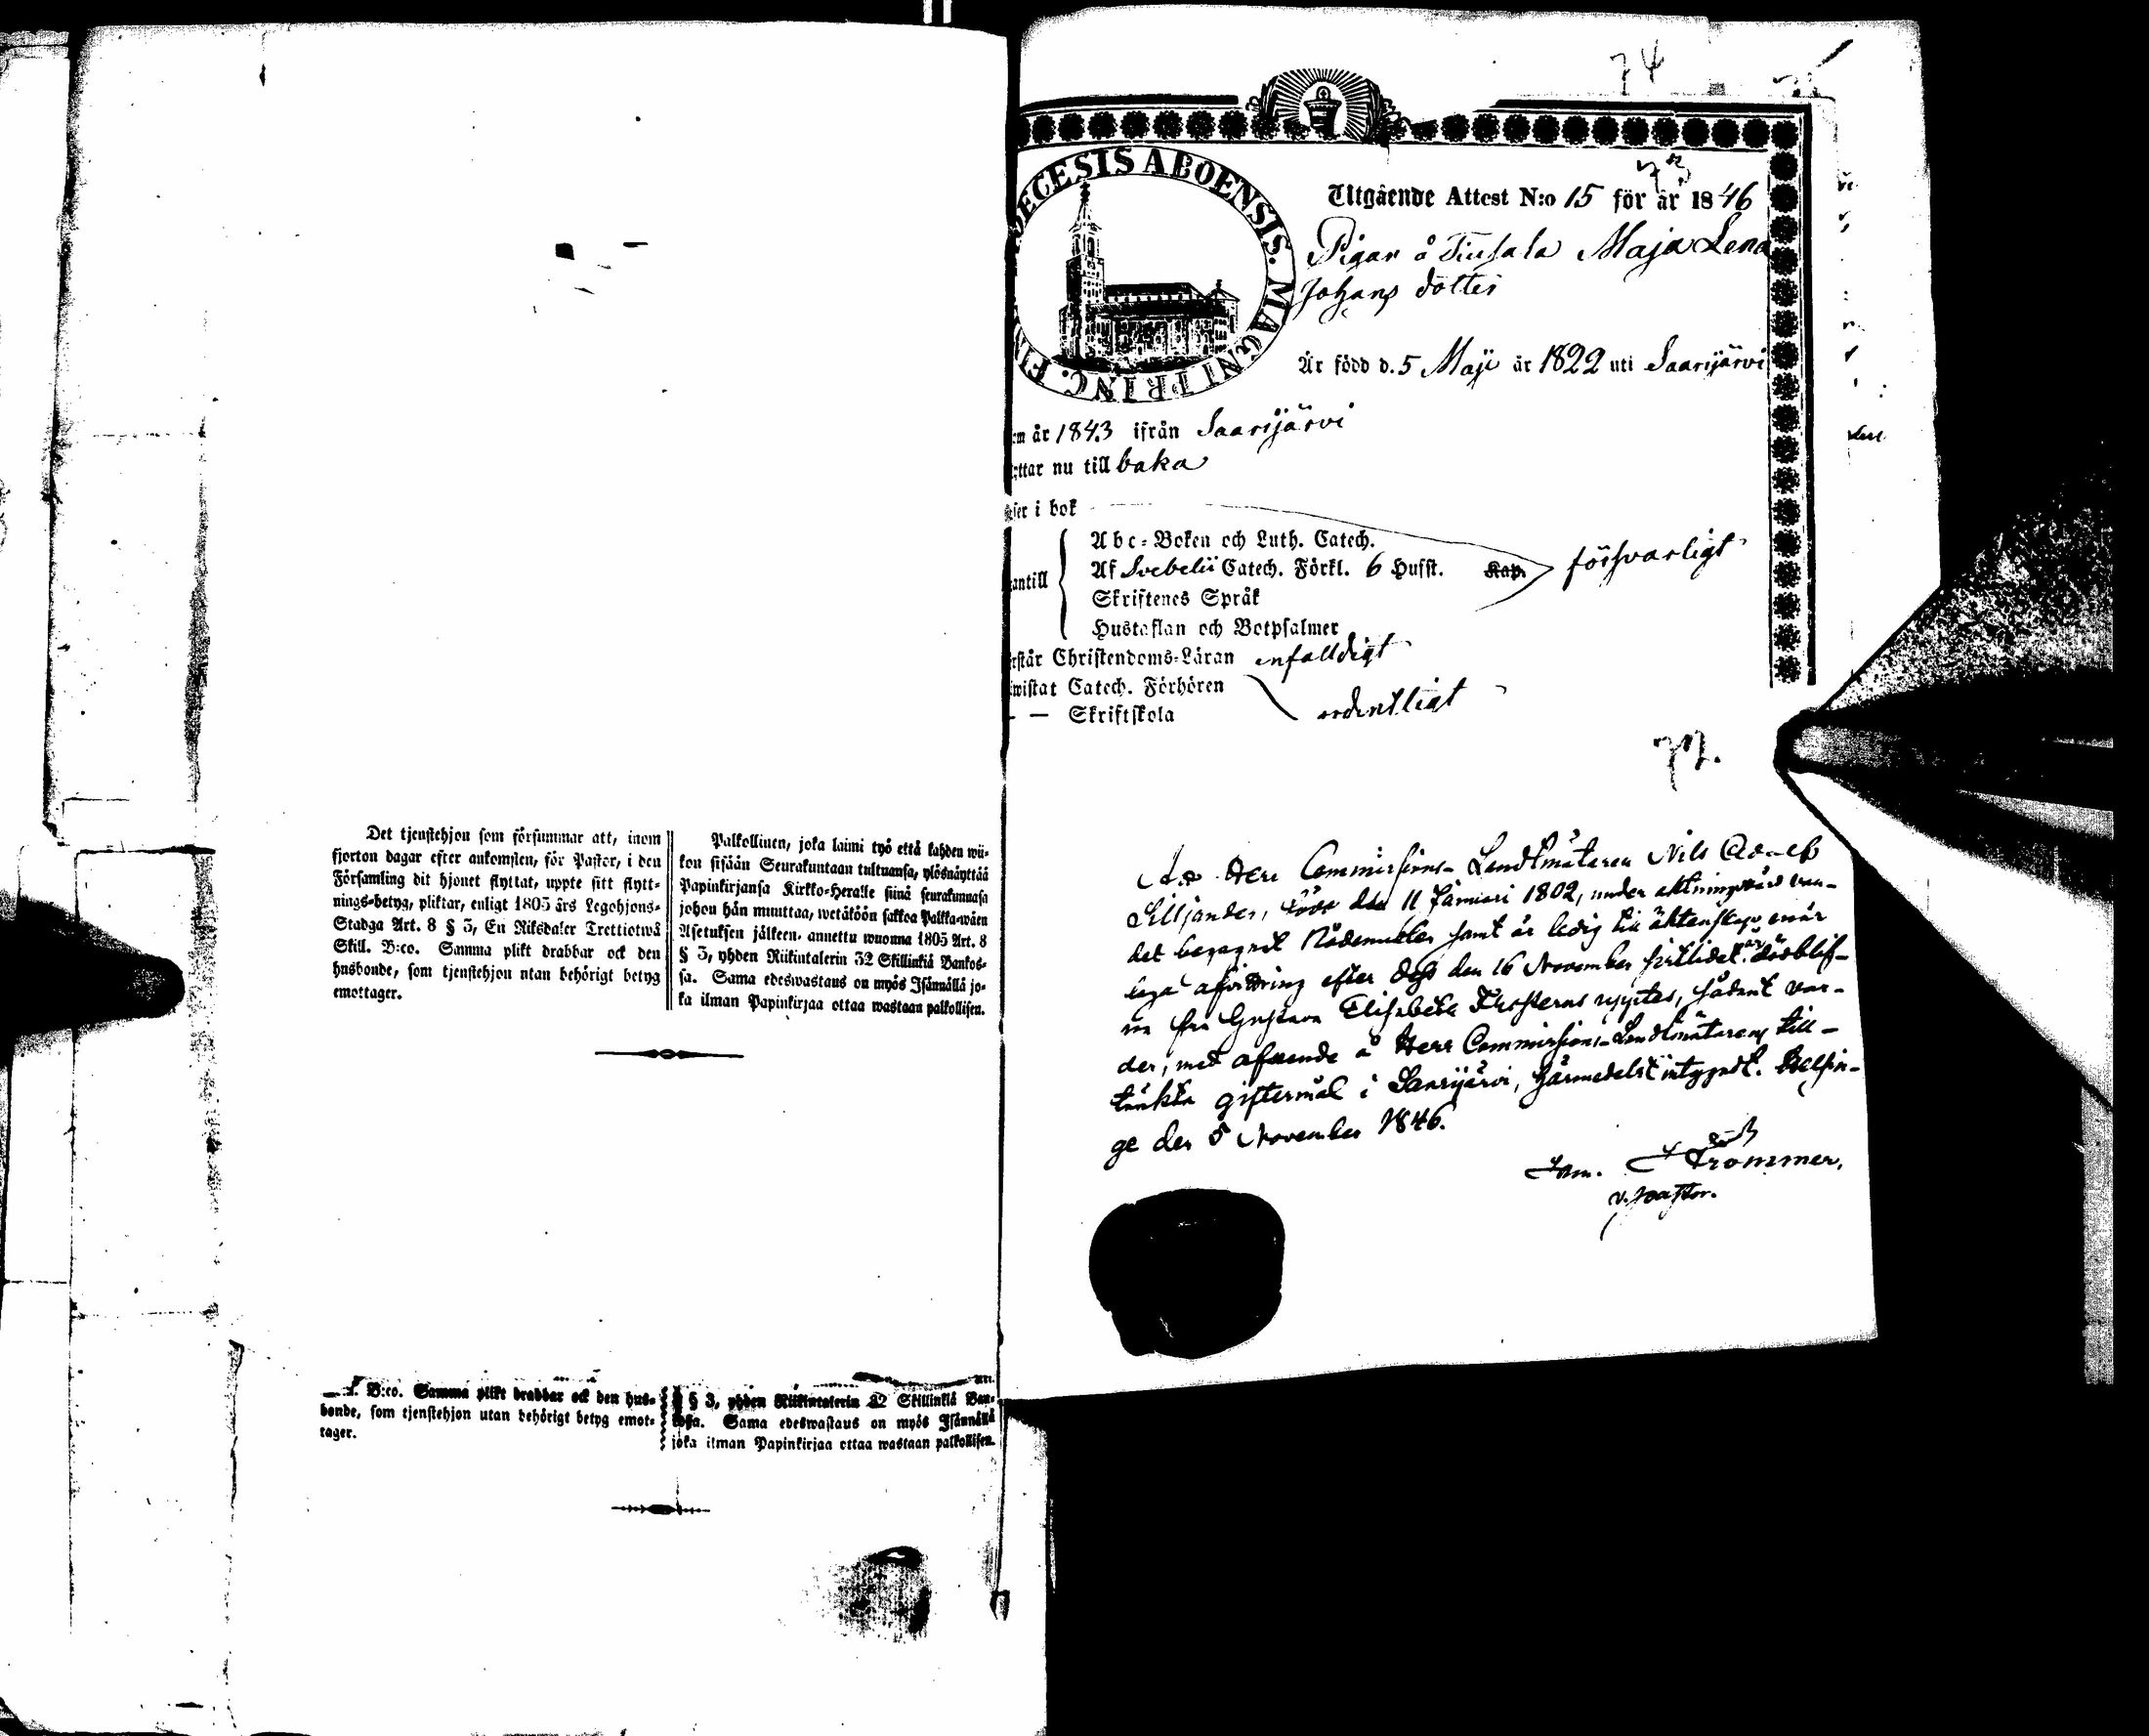 Det tjenstehjon som försummar att, inom
fjorton dagar efter ankomsten, för Pastor, i den
Församling dit hjonet flyttat, uppte sitt flytt-
nings-betyg, pliktar, enligt 1805 års Legohjons-
Stadga Art. 8 § 3, En Riksdaler Trettiotwå
Skill. B:co. Samma plikt drabbar ock den
husbonde, som tjenstehjon utan behörigt betyg
emottager.
Palkollinen, joka laimi lyö että kahden wii-
kon sisään Seurakuntaan tultuansa, ylösnäyttää
Papinkirjansa Kirkko-Heralle siinä seurakunnasa
johon hän muuttaa, wetäköön sakkoa Palkka-wäen
Asetuksen jälkeen, annettu wuonna 1805 Art. 8
§ 3, yhden Riikintalerin 32 Skillinkiä Bankos-
sa. Sama edeswastaus on myös Isännällä jo-
ka ilman Papinkirjaa ottaa wastaan palkollisen.
B:co. Samma plikt drabbar ock den hus-
bonde, som tjenstehjon utan behörigt betyg emot-
tager.
§ 3, yhden Riikintalerin 32 Skillinkiä Ban-
kosa. Sama edeswastaus on myös Isännällä
joka ilman Papinkirjaa ottaa wastaan palkollisen.
74
73
DIOECESIS ABOENSIS. MAGNI PRINC. FIN
Utgående Attest N:o 15 för år 1846
Pigan å Tiusala Maja Lena
Johans dotter
Är född d. 5 Maji år 1822 uti Saarijärvi
om år 1843 ifrån Saarijärvi
yttar nu till baka
äser i bok
Abc-Boken och Luth. Catech.
antill Af Svebelii Catech. Förkl. 6 Husst. Kap. försvarligt
Skriftenes Språk
Hustaflan och Botpsalmer
rstår Christendoms-Läran enfaldigt
wistat Catech. Förhören
— — Skriftskola ordentligt
72.
Att Herr Commissions-Landtmätaren Nils Adolf
Silljander, född den 11 Januari 1802, under aktningsvärd van-
del begagnat Nådemedlen samt är ledig till äktenskap, enär
laga afvittring efter dess den 16 November sistlidet år dödblif-
na fru Gustava Elisabeth upptes, sådant var-
der, med afseende å Herr Commissions-Landtmätarens till-
tänkta giftermål i Saarijärvi, härmedelst intygadt. Helsin-
ge den 5 November 1846.
Strömmer,
v. pastor.